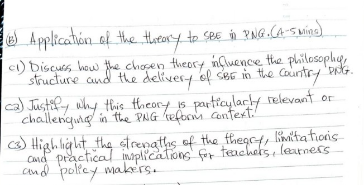 (B) Application of the theory to SBE in PNG. (4-5 mins)
c1) Discuss how the chosen theory influence the philosophy,
structure and the delivery of SBE in the Country PNG.
c2) Justify why this theory is particularly relevant or
challenging in the PNG reform context.
c3) Highlight the strengths of the theory, limitations
and practical implications for teachers, learners
and policy makers.